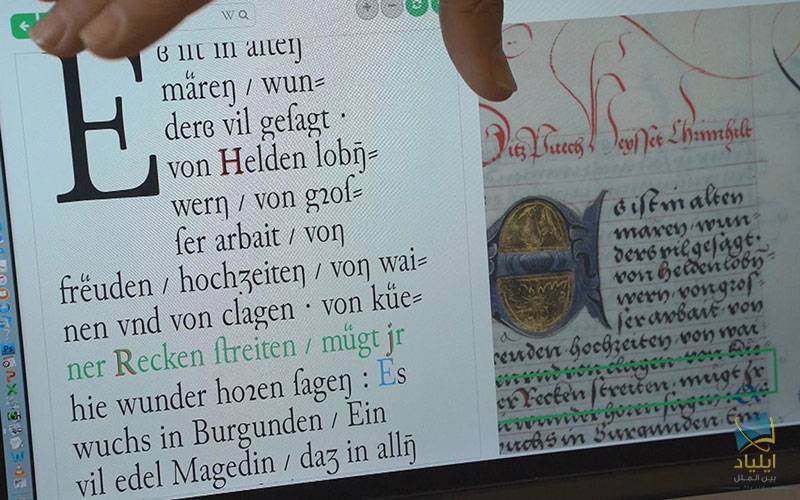 W
Eß iſt in alteŋ
mã̈reŋ / wun⸗
derß vil geſagt ·
von Helden lobn̄⸗
werŋ / von gꝛoſ⸗
ſer arbait / voŋ
freͤuden / hochʒeiteŋ / voŋ wai⸗
nen vnd von clagen · von kuͤe⸗
ner Recken ſtreiten / muͤgt jr
hie wunder hoꝛen ſageŋ : Es
wuchs in Burgunden / Ein
vil edel Magedin / daʒ in alln̄
Ditz Puech Heyſſet Chrimhilt
Es iſt in alten
maren, wun⸗
ders vil geſagt·
von helden lobn̄⸗
wern, von groſ⸗
ſer arbait von
reuden, hochzeiten, von wai
nen vnd von clagen, von kue
er Recken ſtreiten, mugt Jr
wunder horen ſagen, Es
uchs in Burgunden, Ein
ایلیاد
بین الملل